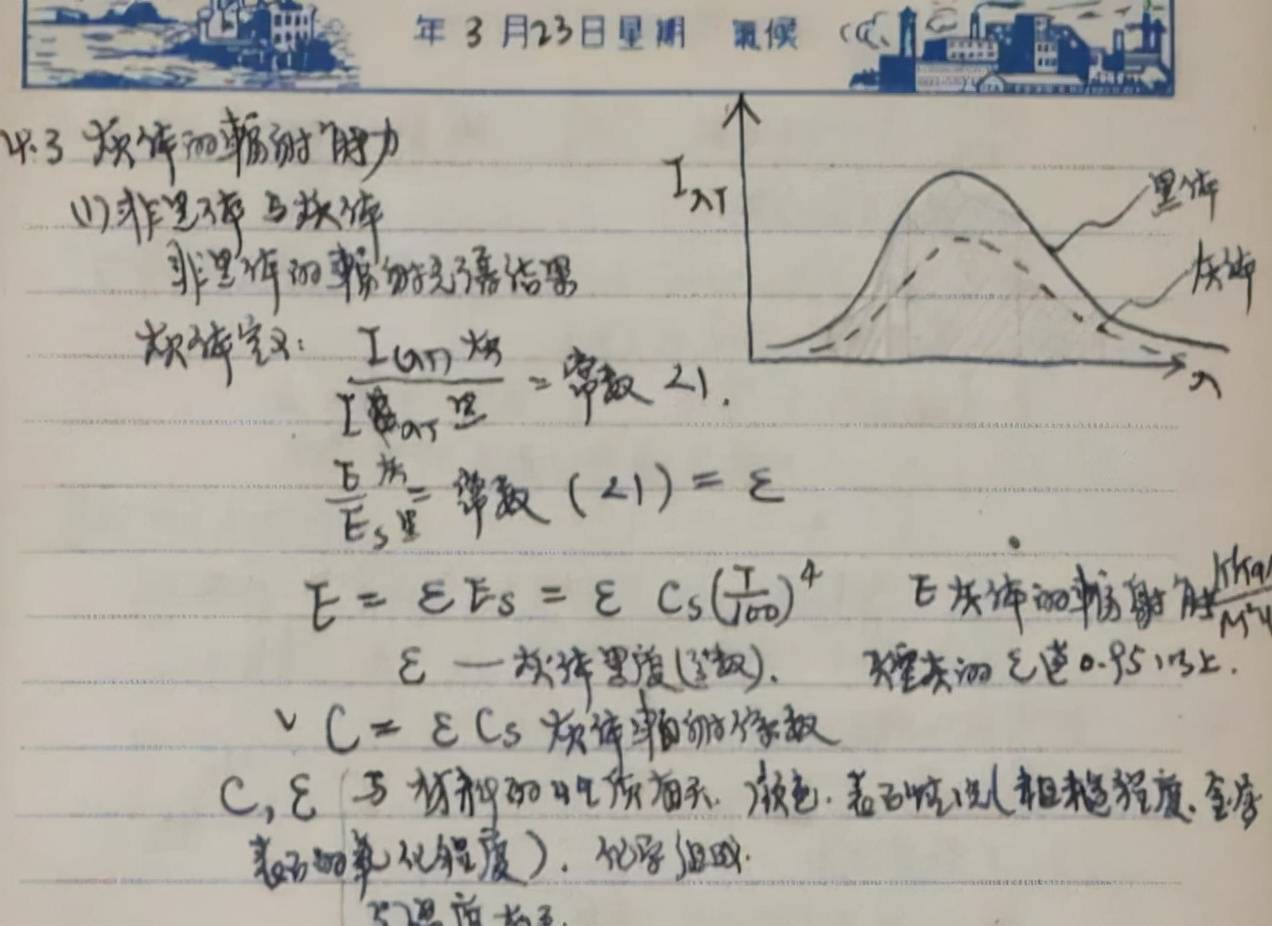 年 3 月 23 日 星 期 氣候
4.3 灰体的辐射能力
(1) 非黑体与灰体
非黑体的辐射光谱结果
灰体定义: I(λT)灰 / I λT 黑 = 常数 <1.
I λT
黑体
灰体
λ
E灰 / Es黑 = 常数 (<1) = ε
E = ε Es = ε Cs(T/100)⁴ E 灰体的辐射能
ε — 灰体黑度(系数). 的 ε 达 0.95 以上.
√ C = ε Cs 灰体辐射系数
C, ε 与材料的性质有关. 颜色. 表面情况(粗糙程度. 金属
表面的氧化程度). 化学组成.
与温度有关.